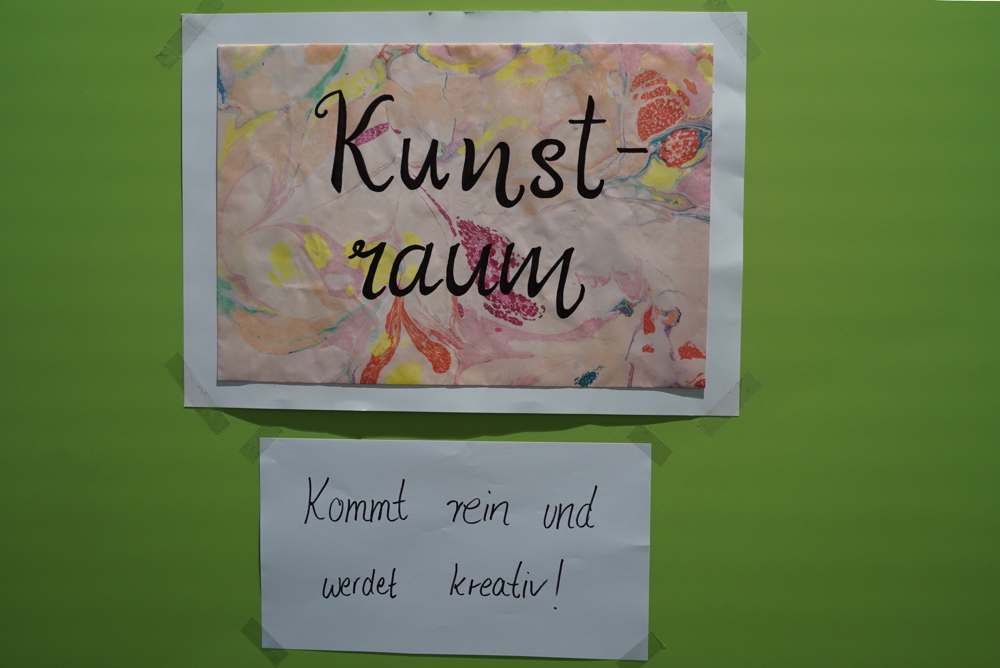 Kunst-
raum
Kommt rein und
werdet kreativ!